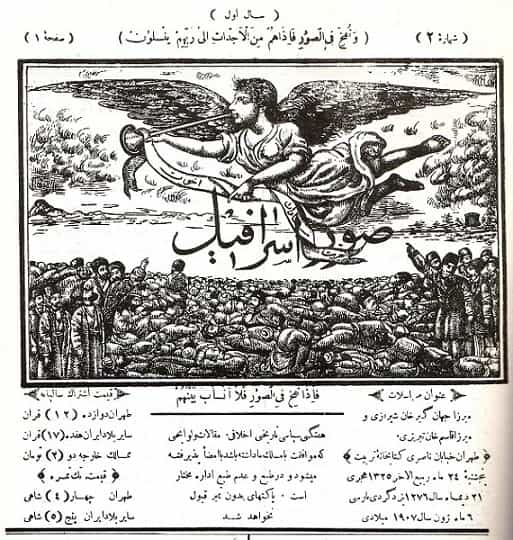 ( سال اول )
( شماره: ۲ ) ( وَ نُفِخَ فِی الصّوُرِ فَاِذَاهُمْ مِنَ الْاَجْداثِ اِلیٰ رَبِّهِمْ یَنْسِلوُنَ ) ( صفحهٔ ۱ )
صور اسرافیل
عنوان مراسلات
میرزا جهانگیر خان شیرازی و
میرزا قاسم خان تبریزی.
طهران خیابان ناصری کتابخانهٔ تربیت
پنجشنبهٔ ۲۴ ماه ربیع الاخر ۱۳۲۵ هجری
۲۱ دیماه سال ۱۲۷۶ یزدگردی پارسی
۶ ماه ژون سال ۱۹۰۷ میلادی
فَاِذا نُفِخَ فِی الصّوُرِ فَلا اَنْسابَ بَیْنَهُمْ
هفتگی سیاسی تاریخی اخلاقی، مقالات و لوایحی
که موافقت با مسلک ما داشته باشد با امضا پذیرفته
میشود و در طبع و عدم طبع اداره مختار
است ۰ پاکتهای بدون تمبر قبول
نخواهد شد
قیمت اشتراک سالیانه
طهران دوازده (۱۲) قران
سایر بلاد ایران هفده (۱۷) قران
ممالک خارجه دو (۲) تومان
قیمت تک نمره
طهران چهار (۴) شاهی
سایر بلاد ایران پنج (۵) شاهی